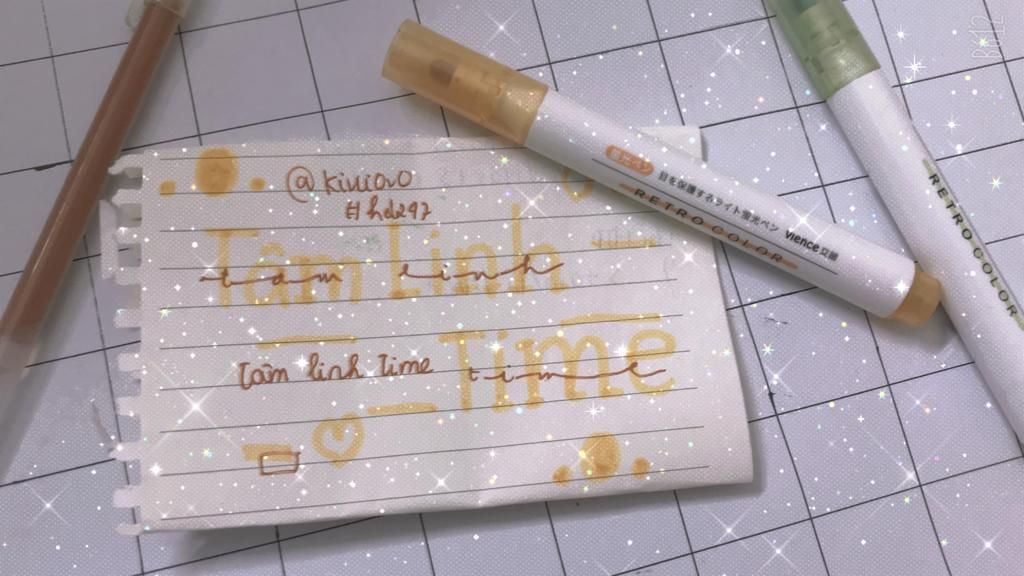 @kiuiovo
Tâm Linh
tam linh
Tâm linh Time
Time
time
目を保護するライト蛍光ペン vience
RETRO COLOR
RETRO COLOR